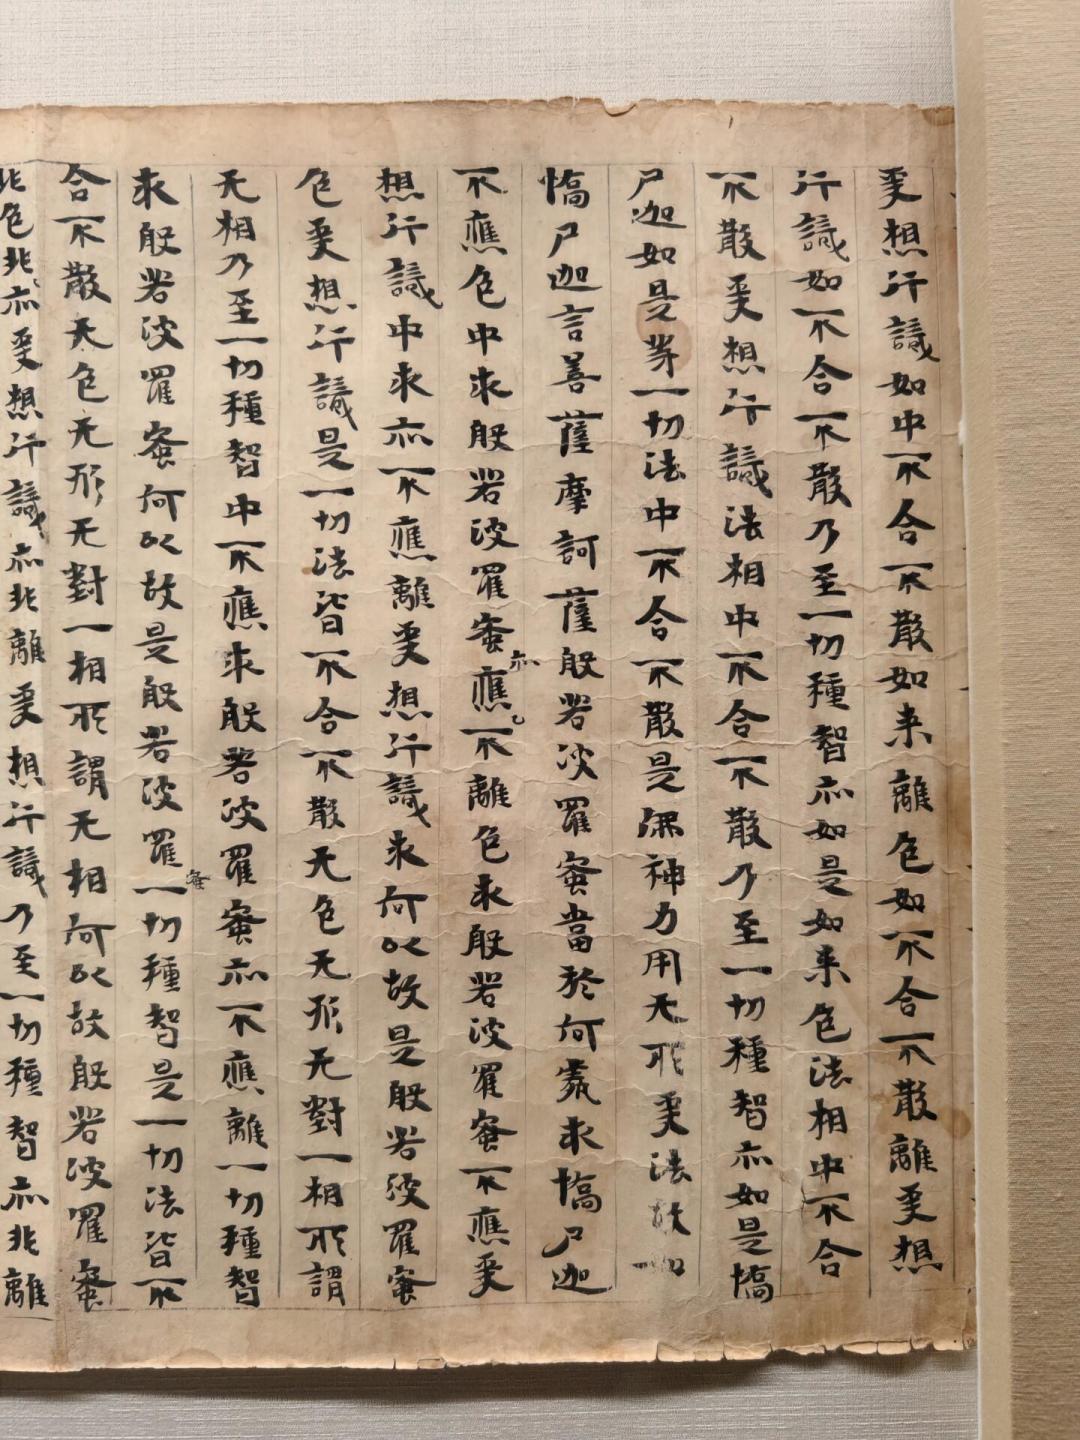 受想行識如中不合不散如来離色如不合不散離受想
行識如不合不散乃至一切種智亦如是如来色法相中不合
不散受想行識法相中不合不散乃至一切種智亦如是憍
尸迦如是等一切法中不合不散是佛神力用无所受法故如
憍尸迦言善薩摩訶薩般若波羅蜜當於何處求憍尸迦
不應色中求般若波羅蜜亦應不離色求般若波羅蜜不應受
想行識中求亦不應離受想行識求何以故是般若波羅蜜
色受想行識是一切法皆不合不散无色无形无對一相所謂
无相乃至一切種智中不應求般若波羅蜜亦不應離一切種智
求般若波羅蜜何以故是般若波羅蜜一切種智是一切法皆不
合不散无色无形无對一相所謂无相何以故般若波羅蜜
非色非亦受想行識亦非離受想行識乃至一切種智亦非離